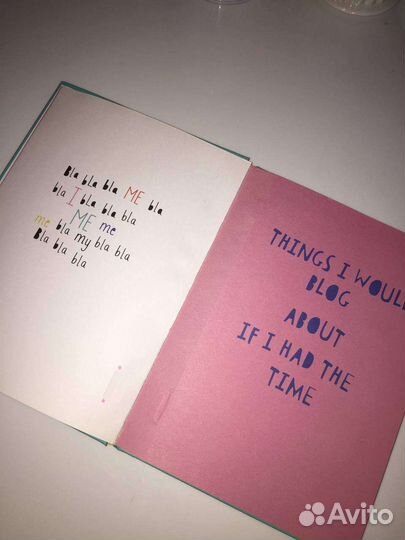 Bla bla bla ME bla
bla I bla bla bla
ME me
me bla my bla bla
Bla bla bla
THINGS I WOUL
BLOG
ABOUT
IF I HAD THE
TIME
Avito